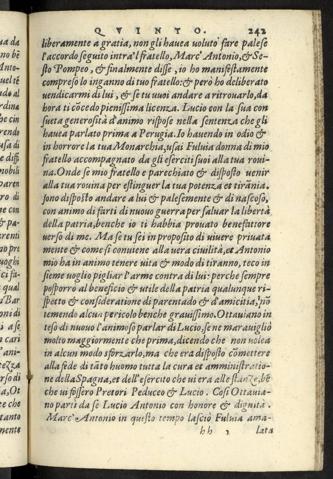 QVINTO. 242
liberamente a gratia, non gli hauea voluto fare palese
l'accordo seguito intra'l fratello, Marc' Antonio, & Se-
sto Pompeo, & finalmente disse, io ho manifestamente
compreso lo inganno di tuo fratello: & però ho deliberato
vendicarmi di lui, & se tu vuoi andare a ritrouarlo, da
hora ti cōcedo pienissima licenza. Lucio con la sua con
sueta generosità d'animo rispose nella sentenza che gli
hauea parlato prima a Perugia. Io hauendo in odio &
in horrore la tua Monarchia, usai Fuluia donna di mio
fratello accompagnato da gli eserciti suoi alla tua roui
na. Onde se mio fratello e parechiato & disposto venir
alla tua rouina per estinguer la tua potenza et tirānia.
sono disposto andare a lui & palesemente & di nascoso,
con animo di farti di nuouo guerra per saluar la libertà
della patria, benche io ti habbia prouato benefattore
verso di me. Ma se tu sei in proposito di viuere priuata
mente & come si conuiene alla vera ciuilità, et Antonio
mio ha in animo tenere vita & modo di tiranno, teco in
sieme voglio pigliar l'arme contra di lui: perche sempre
posporrò al beneficio & utile della patria qualunque ri-
spetto & consideratione di parentado & d'amicitia, nō
temendo alcun pericolo benche grauissimo. Ottauiano in
teso di nuouo l'animoso parlar di Lucio, se ne marauigliò
molto maggiormente che prima, dicendo che non volea
in alcun modo sforzarlo, ma che era disposto cōmettere
alla fede di tāto huomo tutta la cura et amministratio-
ne della Spagna, et dell'esercito che ui era alle stanze, bē
che ui fossero Pretori Peduceo & Lucio. Cosi Ottauia-
no parti da se Lucio Antonio con honore & dignità.
Marc' Antonio in questo tempo lasciò Fuluia ama-
hh 2 lata